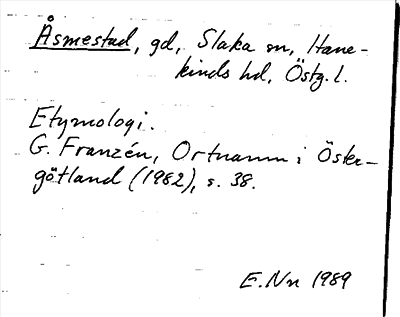 Åsmestad, gd, Slaka sn, Hane-
kinds hd, Östg. l.
Etymologi.
G. Franzén, Ortnamn i Öster-
götland (1982), s. 38.
E. Nn 1989